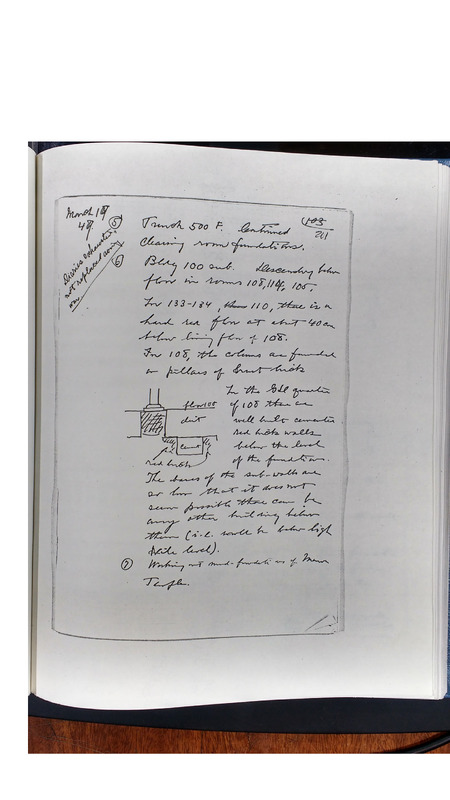 March 19
49
⑤ Trench 500 F. Continued
103
201
clearing room foundations.
⑥ Bldg 100 sub. Descending below
floor in rooms 108, 109, 105.
In 133-134, 110, there is a
hard red floor at about 40 cm
below living floor of 108.
In 108, the columns are founded
on pillars of burnt brick
In the quarter
floor 108
of 108 there are
dirt
well built cemented
red brick walls
cement
below the level
red brick
of the foundations.
The bases of the sub-walls are
so low that it does not
seem possible there can be
any other building below
them (i.e. would be below high
Nile level).
⑦ Working out mud-foundations of Inner
Temple.